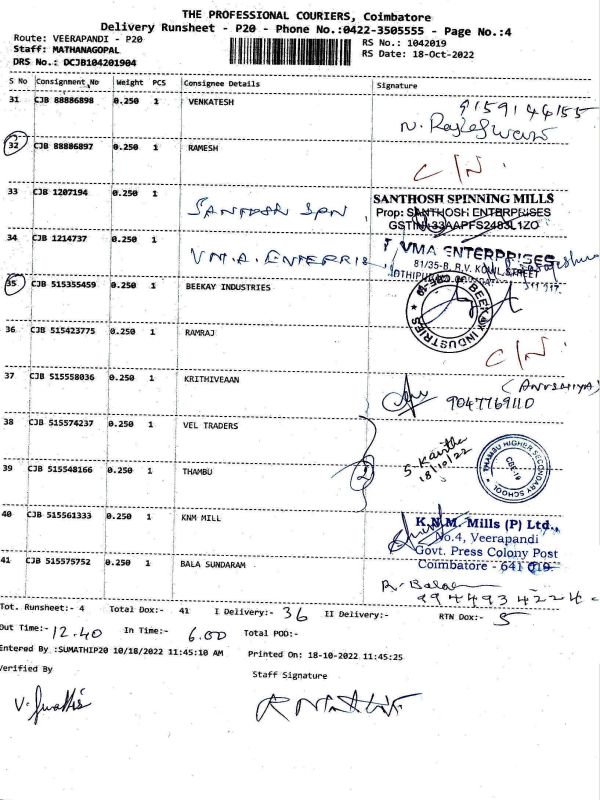 THE PROFESSIONAL COURIERS, Coimbatore
Delivery Runsheet - P20 - Phone No.:0422-3505555 - Page No.:4
Route: VEERAPANDI - P20
RS No.: 1042019
Staff: MATHANAGOPAL
RS Date: 18-Oct-2022
DRS No.: DCJB104201904
S No Consignment No Weight PCS Consignee Details Signature
31 CJB 88886898 0.250 1 VENKATESH
9159144155
N. Rajeshwari
32 CJB 88886897 0.250 1 RAMESH
C/N
33 CJB 1207194 0.250 1
SANTHOSH SPN
SANTHOSH SPINNING MILLS
Prop: SANTHOSH ENTERPRISES
34 CJB 1214737 0.250 1
V.M.A. ENTERPRIS
VMA ENTERPRISES
81/35-B, R.V. KOVIL STREET
35 CJB 515355459 0.250 1 BEEKAY INDUSTRIES
BEEKAY INDUSTRIES
36 CJB 515423775 0.250 1 RAMRAJ
C/N
37 CJB 515558036 0.250 1 KRITHIVEAAN
(ANUSHIYA)
9047769110
38 CJB 515574237 0.250 1 VEL TRADERS
S. Kavitha
18/10/22
THAMBU HIGHER SECONDARY SCHOOL
CBE-19
39 CJB 515548166 0.250 1 THAMBU
2
40 CJB 515561333 0.250 1 KNM MILL
K.N.M. Mills (P) Ltd.,
No.4, Veerapandi
Govt. Press Colony Post
Coimbatore - 641 019.
41 CJB 515575752 0.250 1 BALA SUNDARAM
9944934224
Tot. Runsheet:- 4 Total Dox:- 41 I Delivery:- 36 II Delivery:- RTN Dox:- 5
Out Time:- 12.40 In Time:- 6.00 Total POD:-
Entered By :SUMATHIP20 10/18/2022 11:45:10 AM Printed On: 18-10-2022 11:45:25
Verified By
Staff Signature